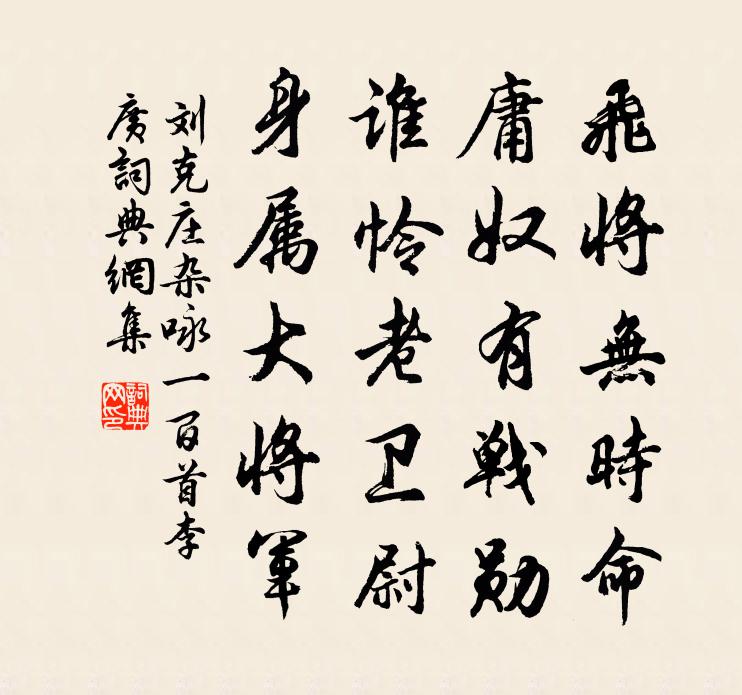 飛將無時命
庸奴有戰勋
谁怜老卫尉
身属大將軍
刘克庄杂咏一百首李
广詞典網集
詞典網印